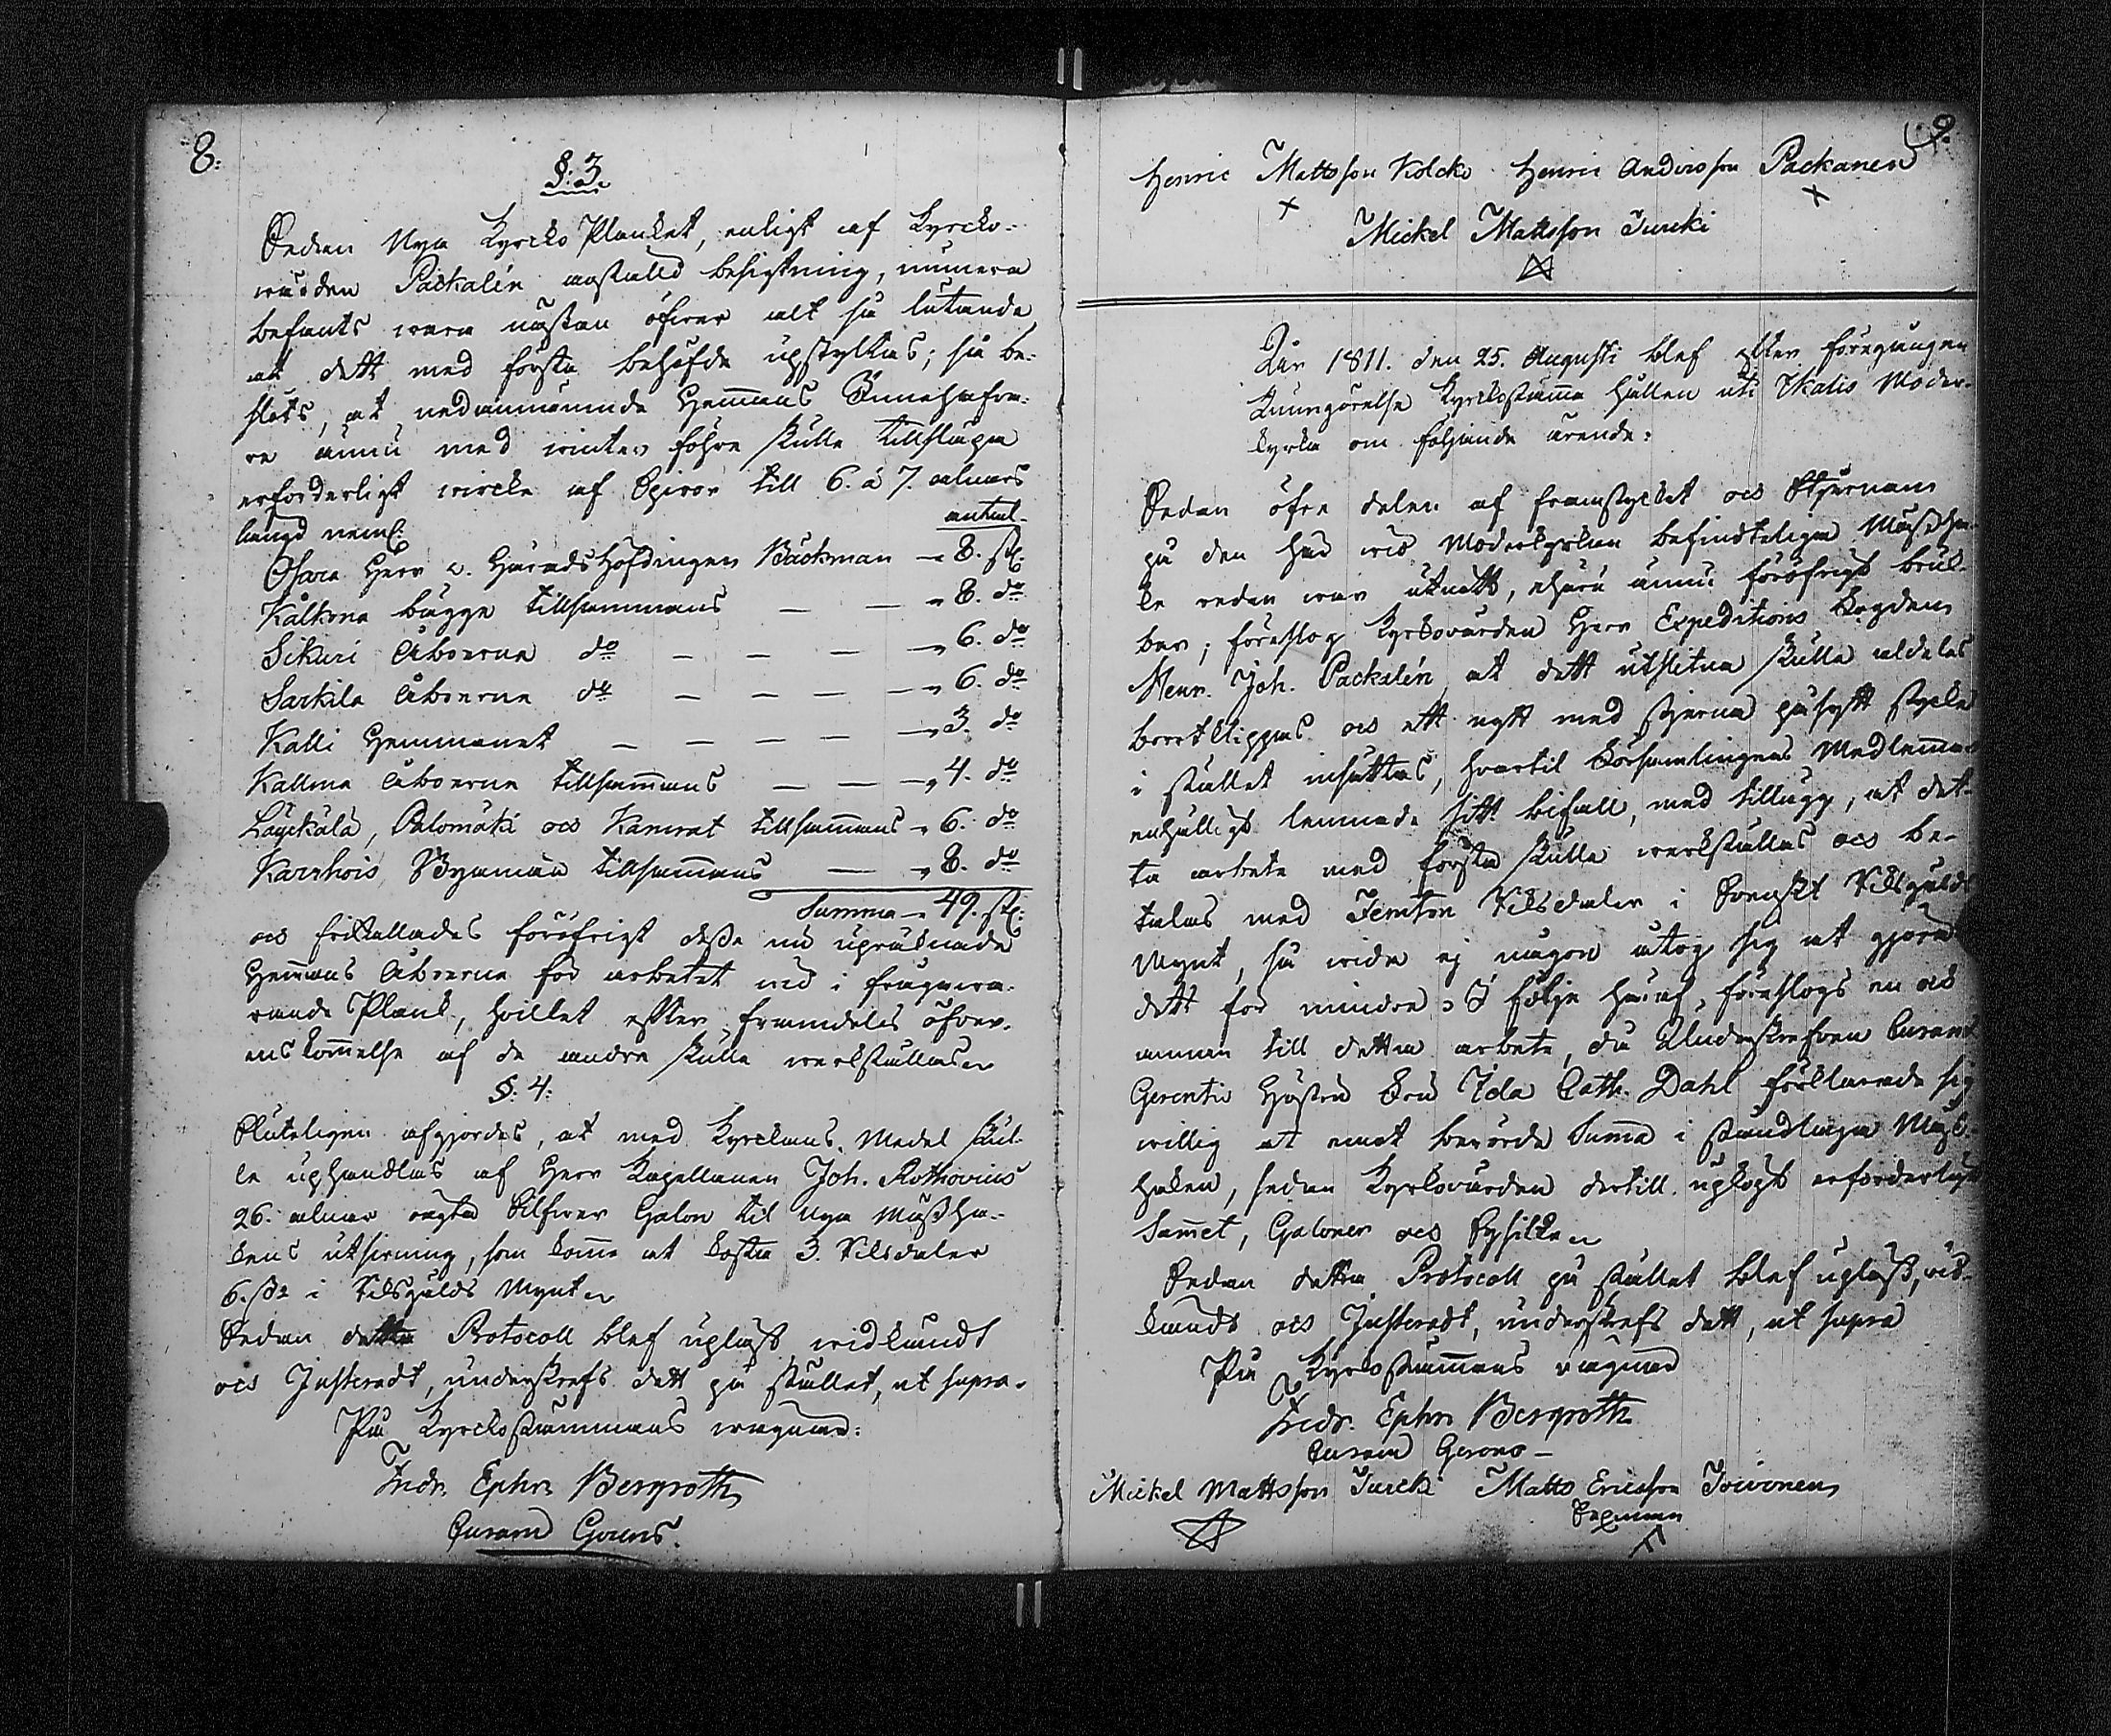 8:
§: 3.
Sedan Nya Kyrcko Planket, enligt af Kyrcko-
wärden Packalén anstäld besigtning, numera
befants wara nästan öfwer alt så lutande
at dett med första behöfde upstyltas; så be-
slöts, at nedannämnde Hemans Innehafwa-
re ännu med winter föhre skulle tillsläpa
erforderligt wircke af Spiror till 6. á 7. alnars
längd neml:
antal.
Osara Herr v. Häradshöfdingen Bäckman — 8. st:
Kålkona bägge tillsammans — — 8. do
Sikuri Åboerna do — — — 6. do
Sarkila Åboerna do — — — — 6. do
Kalli Hemmanet — — — — — 3. do
Kallma Åboerne tillsamans — — — 4. do
Läyckälä, Palomäki och Kamrat tillsamans — 6. do
Karrhois Byamän tillsamans — — 8. do
Summa — 49. st:
och frikallades föröfrigt desse nu upräknade
Hemans Åboerne för arbetet wid i frågawa-
rande Plank, hvilket efter framdeles öfver-
ens komelse af de andra skulle werkställas
§: 4:
Sluteligen afgjordes, at med Kyrckans Medel skul-
le uphandlas af Herr Kapellanen Joh. Rothovius
26. alnar ägta Silfwer Galon til Nya Mässha-
kens utsirning, som kome at kosta 3. Riksdaler
6. sk: i Riksgälds Mynt
Sedan detta Protocoll blef upläst widkändt
och Justeradt, underskrefs dett på stället, ut supra.
På Kyrckostämmans wägnar:
Fredr. Ephr. Bergroth
Curam Gerens.
9.
Henric Mattsson Kolcko Henric Andersson Packanen
x x
Mickel Mattsson Jurcki
År 1811. den 25. Augusti blef efter föregången
Kungörelse Kyrkostämma hållen uti Ikalis Moder-
kyrka om följande ärende:
Sedan öfre delen af framstycket och Stjernan
på den här wid Moderkyrkan befindteliga Mässha-
ke redan war utnött, ehuru ännu föröfrigt bruk-
bar; föreslog Kyrkovärden Herr Expeditions Fogden
Henr. Joh. Packalén at dett utslitna skulle aldeles
bortklippas och ett nytt med stjerna påsytt stycke
i stället insättas, hvartil Församlingens Medlemar
enhälligt lemnade sitt bifall, med tillägg, at det-
ta arbete med första skulle werkställas och be-
talas med Femton Riksdaler i Svenskt Riksgälds
Mynt, så wida ej någon åtog sig at gjöra
dett för mindre. I följe häraf föreslogs en och
annan till detta arbete, då Underskrefven Curam
Gerentis Hustru Fru Ida Cath. Dahl förklarade sig
willig at emot berörde Suma i ståndlaga Mäss-
haken, sedan Kyrkovärden dertill upköpt erforderligt
Samet, Galoner och Sysilke
Sedan detta Protocoll på stället blef upläst, wid-
kändt och Justeradt, underskrefs dett, ut supra
På Kyrkostämmans wägnar
Fredr. Ephr. Bergroth
Curam Gerens —
Mickel Mattsson Jurcki Matts Ericsson Toivonen
Sexman